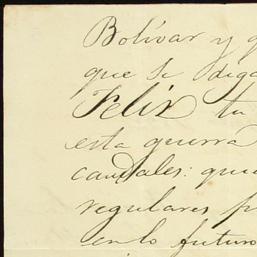 Bolívar y q
que se diga
Felix tu
esta guerra
caudales: que
regulares p
en lo futuro